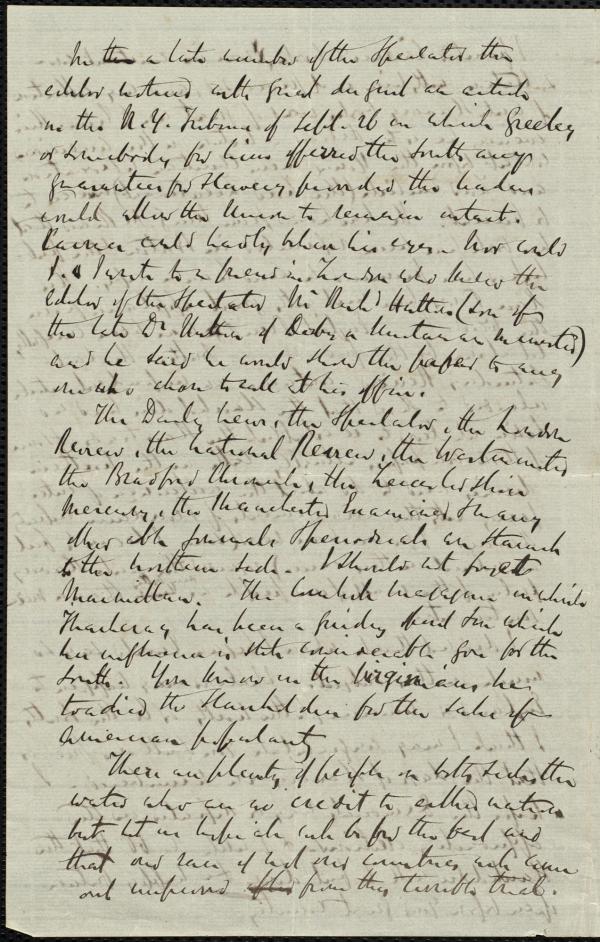 In the a late number of the Spectator the
editor noticed with great disgust an article
in the N.Y. Tribune of Sept. 26 in which Greeley
or somebody for him offered the South any
guarantees for Slavery, provided the leaders
would allow the Union to remain intact.
could hardly believe his eyes. Nor could
I. I wrote to a friend in London who knew the
editor of the Spectator, Mr Richd Hutton (Son of
the late Dr Hutton of Derby a Unitarian minister)
and he said he would show the paper to any
one who chose to call at his office.
The Daily News, the Spectator, the London
Review, the National Review, the Westminster
the Bradford Chronicle, the Leicestershire
Mercury, the Manchester Examiner & many
other able journals & periodicals are staunch
to the northern side. I should not forget
Macmillan. The Cornhill Magazine in which
Thackeray has been a guiding and in which
his influence is still considerable goes for the
South. You know in the Virginians he
toadied the Slaveholders for the sake of
American popularity
There are plenty of people on both sides the
water who are no credit to either nation
but let us hope all will be for the best and
that our race if not our countries will come
out improved from this terrible trial.